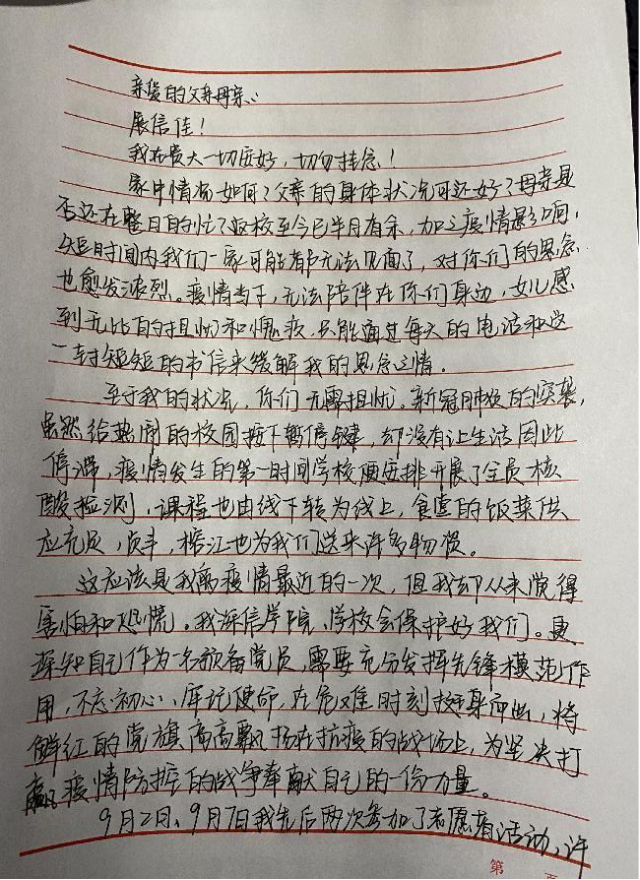 亲爱的父亲母亲：
展信佳！
我在贵大一切安好，切勿挂念！
家中情况如何？父亲的身体状况可还好？母亲是
否还在整日的忙？返校至今已半月有余，加之疫情影响，
短时间内我们一家可能都无法见面了，对你们的思念
也愈发浓烈。疫情当下，无法陪伴在你们身边，女儿感
到无比的担忧和愧疚，只能通过每天的电话和这
一封短短的书信来缓解我的思念之情。
至于我的状况，你们无需担忧。新冠肺炎的突袭，
虽然给热闹的校园按下暂停键，却没有让生活因此
停滞，疫情发生的第一时间学校便安排开展了全员核
酸检测，课程也由线下转为线上，食堂的饭菜供
应充足，贞丰、榕江也为我们送来许多物资。
这应该是我离疫情最近的一次，但我却从未觉得
害怕和恐慌。我深信学院、学校会保护好我们。更
深知自己作为一名预备党员，需要充分发挥先锋模范作
用，不忘初心、牢记使命，在危难时刻挺身而出，将
鲜红的党旗高高飘扬在抗疫的战场上，为坚决打
赢疫情防控的战争奉献自己的一份力量。
9月2日、9月7日我先后两次参加了志愿者活动，许
第 页